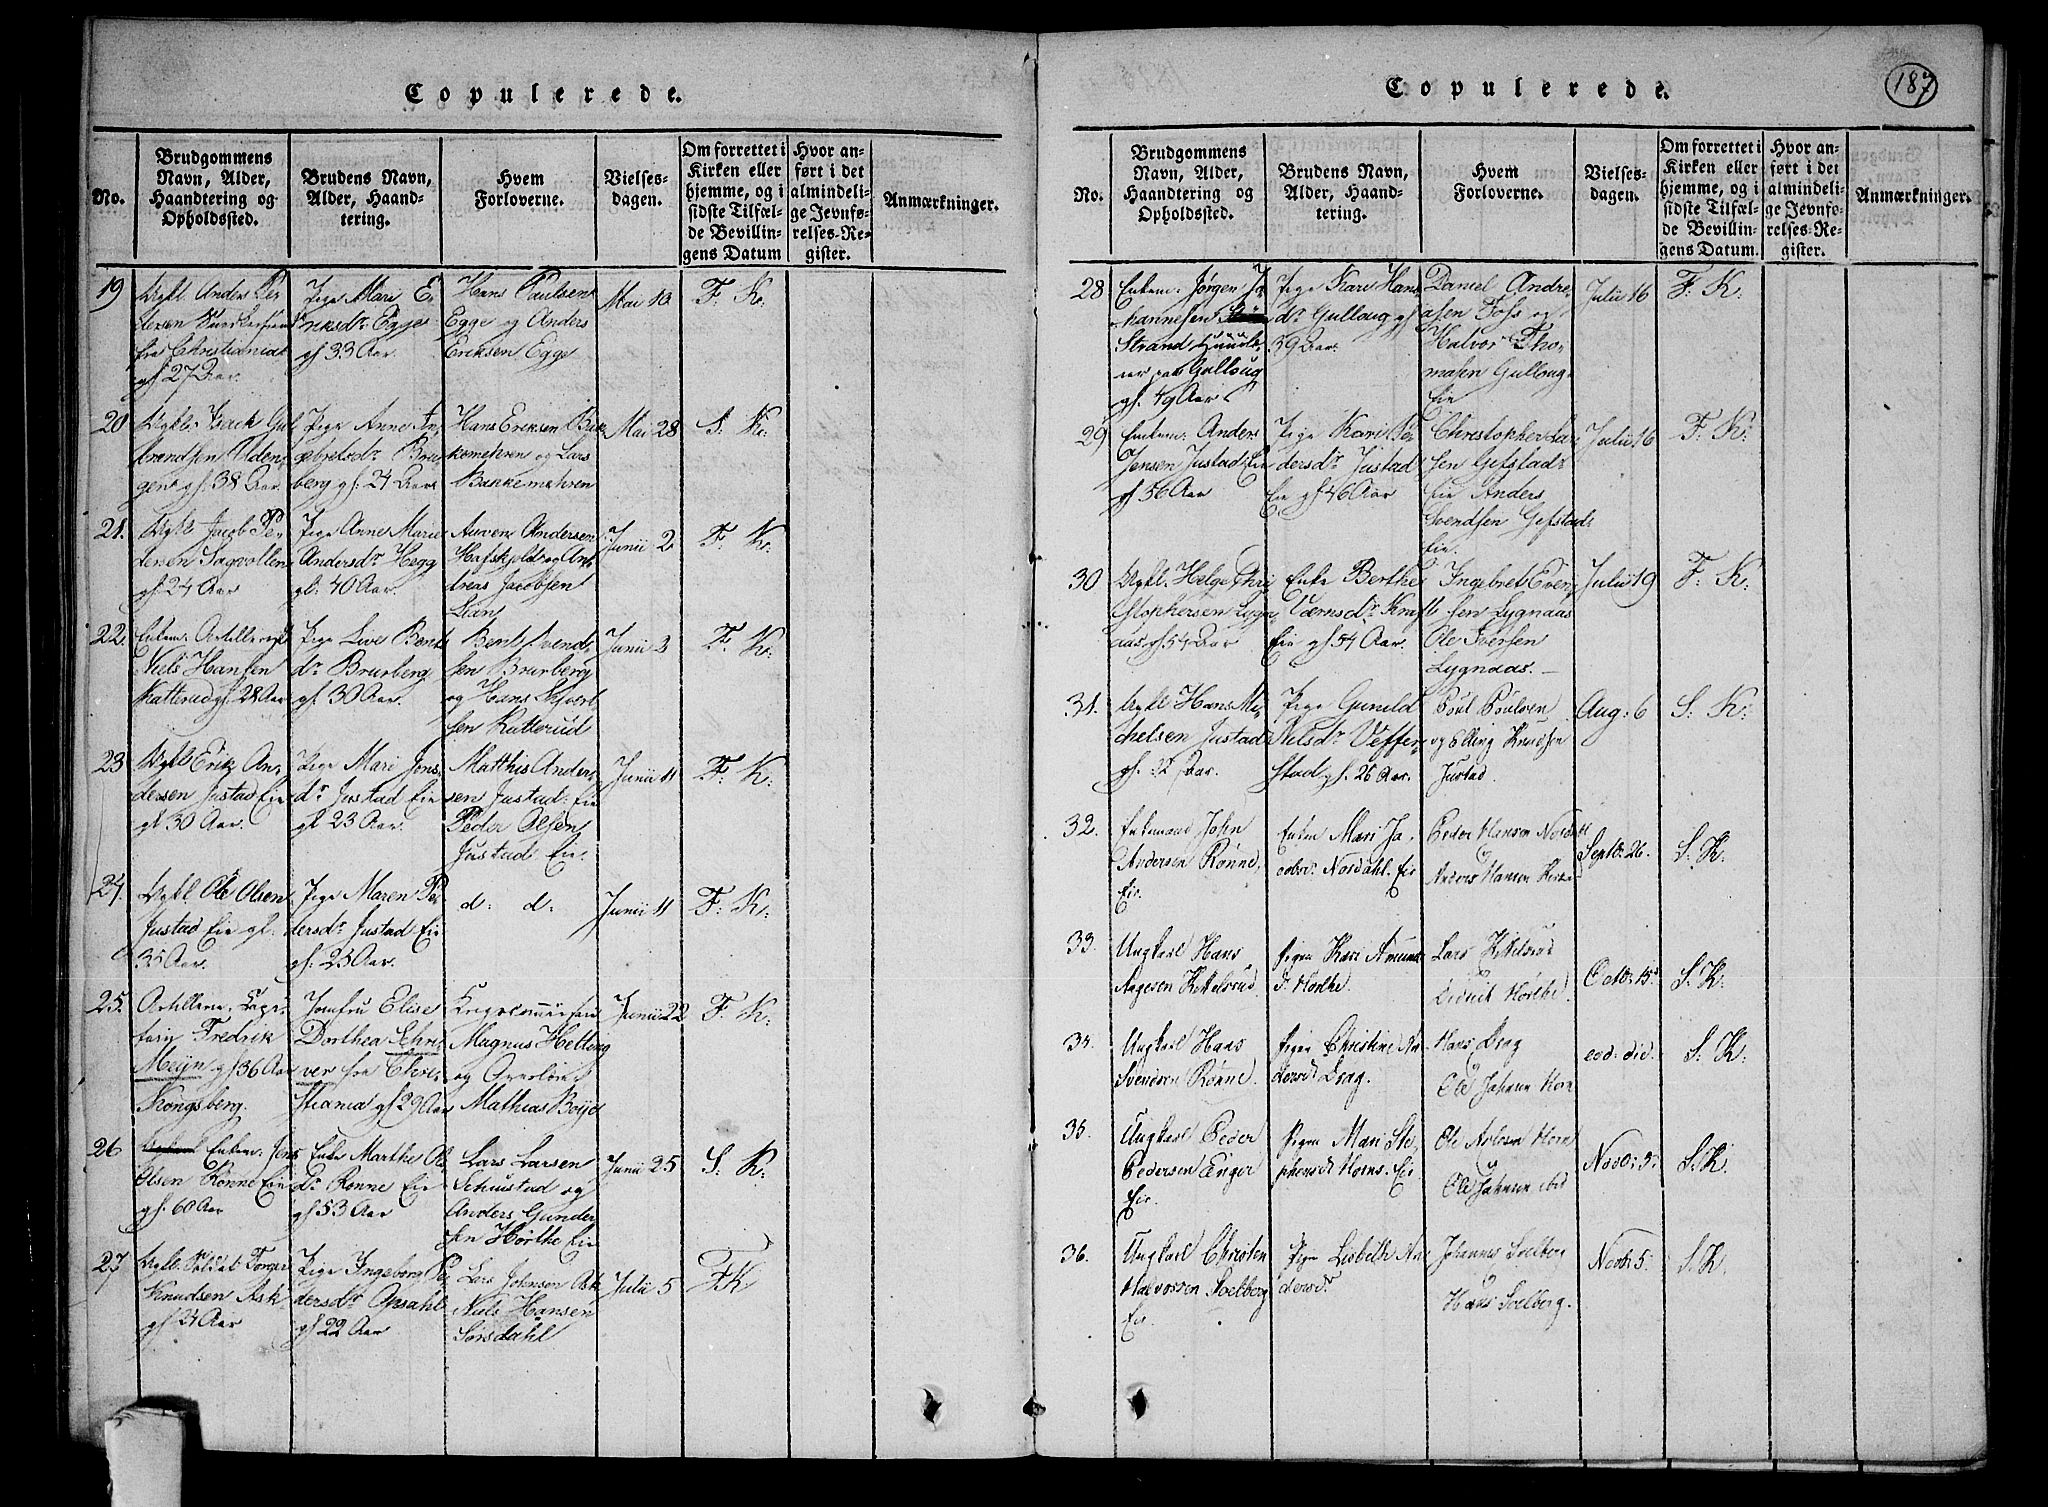 Copulerede.
No.
Brudgommens
Navn, Alder,
Haandtering og
Opholdssted.
Brudens Navn,
Alder, Haand-
tering.
Hvem
Forloverne.
Vielses-
dagen.
Om forrettet i
Kirken eller
hjemme, og i
sidste Tilfæl-
de Bevillin-
gens Datum
Hvor an-
ført i det
almindeli-
ge Jevnfø-
relses-Re-
gister.
Anmærkninger.
19
Ugkl. Anders Pe-
dersen
fra Christiania
gl 27 Aar.
Pige Mari E-
riksdr Egge
gl 33 Aar.
Hans Paulsen
Egge og Anders
Eriksen Egge
Mai 10
F. K.
20
Ugkl. Isach Gul
brandsen Uden-
gen gl: 38 Aar
Pige Anne In-
gebretsdr Bru-
berg gl: 24 Aar
Hans Eriksen Bak
kemehren og Lars
Bakkemehren
Mai 28
S. K.
21.
Ugkl Jacob Pe-
dersen Sagvollen
gl: 24 Aar
Pige Anne Marie
Andersdr Hegg
gl: 40 Aar.
Andersen
Hafskjold og An-
dreas Jacobsen
Lian
Junii 2
F. K.
22.
Enkem: Artillerist
Niels Hansen
Katterud gl: 28 Aar
Pige Live Bents
dr Brurberg
gl. 30 Aar.
Bent Svend-
sen Brurberg
og Hans Syvert
sen Katterud
Junii 3
F. K:
23
Ugkl Erik An-
dersen Justad Eie
gl 30 Aar.
Pige Mari Jens-
dr Justad Eie
gl 23 Aar.
Matthis Ander-
sen Justad: Eie
Peder Olsen
Justad Eie.
Junii 11
F. K:
24.
Ugkl Ole Olsen
Justad Eie gl.
35 Aar.
Pige Maren Pe
dersdr Justad Eie
gl: 25 Aar.
d: d:
Junii 11
F. K:
25.
Artillerie-Capi-
tain Fredrik
Meijn gl 36 Aar
Kongsberg.
Jomfru Elise
Dorthea Schri-
ver fra Chri-
stiania gl 29 Aar
Krigscommissair
Magnus Helting
og
Mathias Boije
Junii 22
F. K:
26
Enkem. Jens
Olsen Rønne Eie
gl. 60 Aar
Enke Marthe Ols
Dr Rønne Eie
gl 53 Aar
Lars Larsen
Schustad og
Anders Gunder
sen Hørthe Eie
Junii 25
S. K:
27
Ugkl. Soldat Torger
Knudsen Ask
gl 24 Aar
Pige Ingeborg Pe
dersdr Opsahl
gl 22 Aar
Lars Johnsen Ask
Niels Hansen
Sørsdahl
Julii 5
F K
Copulerede.
187
No.
Brudgommens
Navn, Alder,
Haandtering og
Opholdssted.
Brudens Navn,
Alder, Haand-
tering.
Hvem
Forloverne.
Vielses-
dagen.
Om forrettet i
Kirken eller
hjemme, og i
sidste Tilfæl-
de Bevillin-
gens Datum.
Hvor an-
ført i det
almindeli-
ge Jevnfø-
relses-Re-
gister.
Anmærkninger.
28
Enkem: Jørgen Jo-
hannesen
Strand,
paa Gulloug
gl. 49 Aar
Pige Kari Hans
dr Gulloug gl
39 Aar.
Daniel Andre-
asen Foss og
Halvor Tho-
masen Gulloug-
Eie
Julii 16
F. K:
29
Enkem: Anders
Jensen Justad Eie
gl 56 Aar
Pige Kari Pe-
dersdr Justad
Eie gl 46 Aar
Christopher La-
sen Gefstad-
Eie Anders
Svendsen Gefstad
Eie.
Julii 16
F. K:
30
Ugkl. Helge Chri
stophersen Lygn
aas gl 54 Aar
Enke Berthe
Værnsdr Kraft
Eie gl 54 Aar.
Ingebret Iver-
sen Lygnaas
Ole Iversen
Lygnaas.
Julii 19
F. K:
31.
Ugkl Hans Mi-
chelsen Justad
gl. Aar.
Pige Gunild
Nilsdr Veffer-
stad gl. 26 Aar.
Poul Poulsen
og Elling Knudsen
Justad.
Aug: 6
S. K:
32.
Enkemand John
Andersen Rønne
Eie.
Enke Mari Ja-
cobsdr Nordahl. Eie
Peder Hansen Nordahl
Anders Hansen
Septbr: 26.
S. K.
33.
Ungkarl Hans
Aagesen Kittelsrud
Pigen Kari Amund
dr Hørthe.
Lars Kittelsrud
Didrik Hørthe.
Octbr: 15d
S. K.
34.
Ungkarl Hans
Svendsen Rønne.
Pigen Christine An-
dersdr Krag.
Hans Krag
Ole Johnsen Horn
eod: die.
S. K.
35.
Ungkarl Peder
Pedersen Enger
Eie.
Pigen Mari Ste-
phensdr Horns. Eie
Ole Arlesen Horn
Ole Johnsen ibid
Novbr: 5.
S. K.
36.
Ungkarl Christen
Halvorsen Solberg
Eie.
Pigen Lisbeth An-
dersdr
Johannes Solberg
Hans Solberg.
Novbr: 5.
S. K.